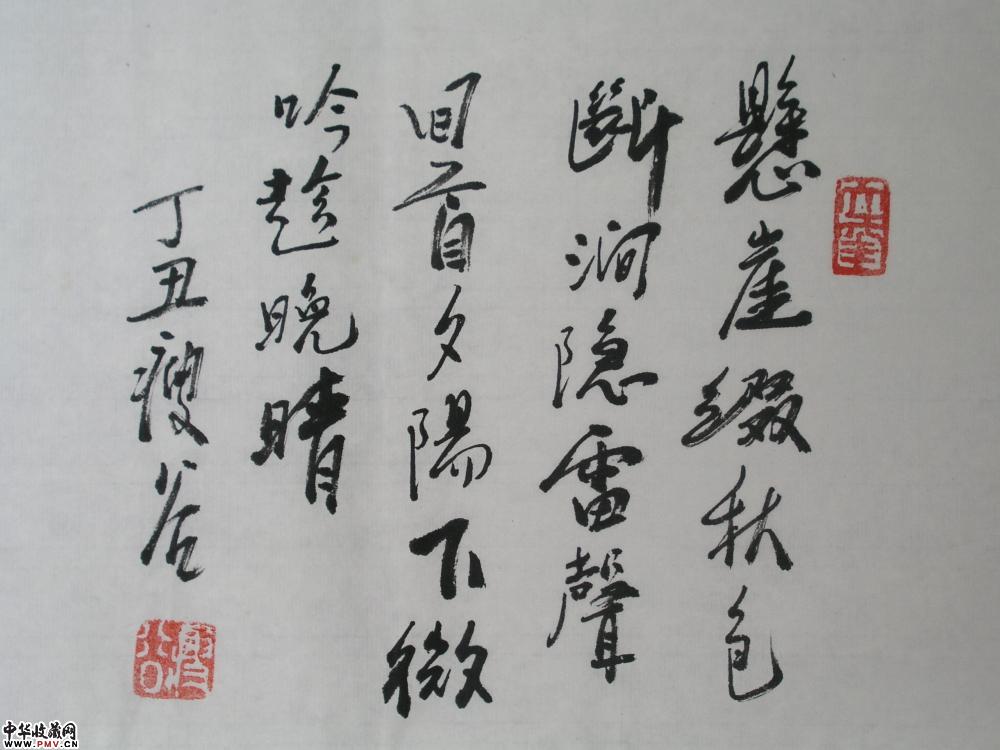 懸崖綴秋色
斷澗隐雷聲
回首夕陽下微
吟趁晚晴
丁丑瘦谷
瘦谷
中华收藏网
www.PMV.CN